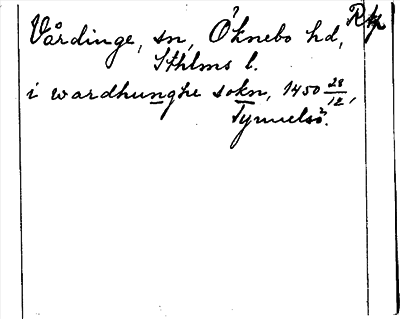 Vårdinge, sn, Öknebo hd, Rtp
Sthlms l.
i wardhunghe sokn, 1450 28/12,
Tynnelsö.